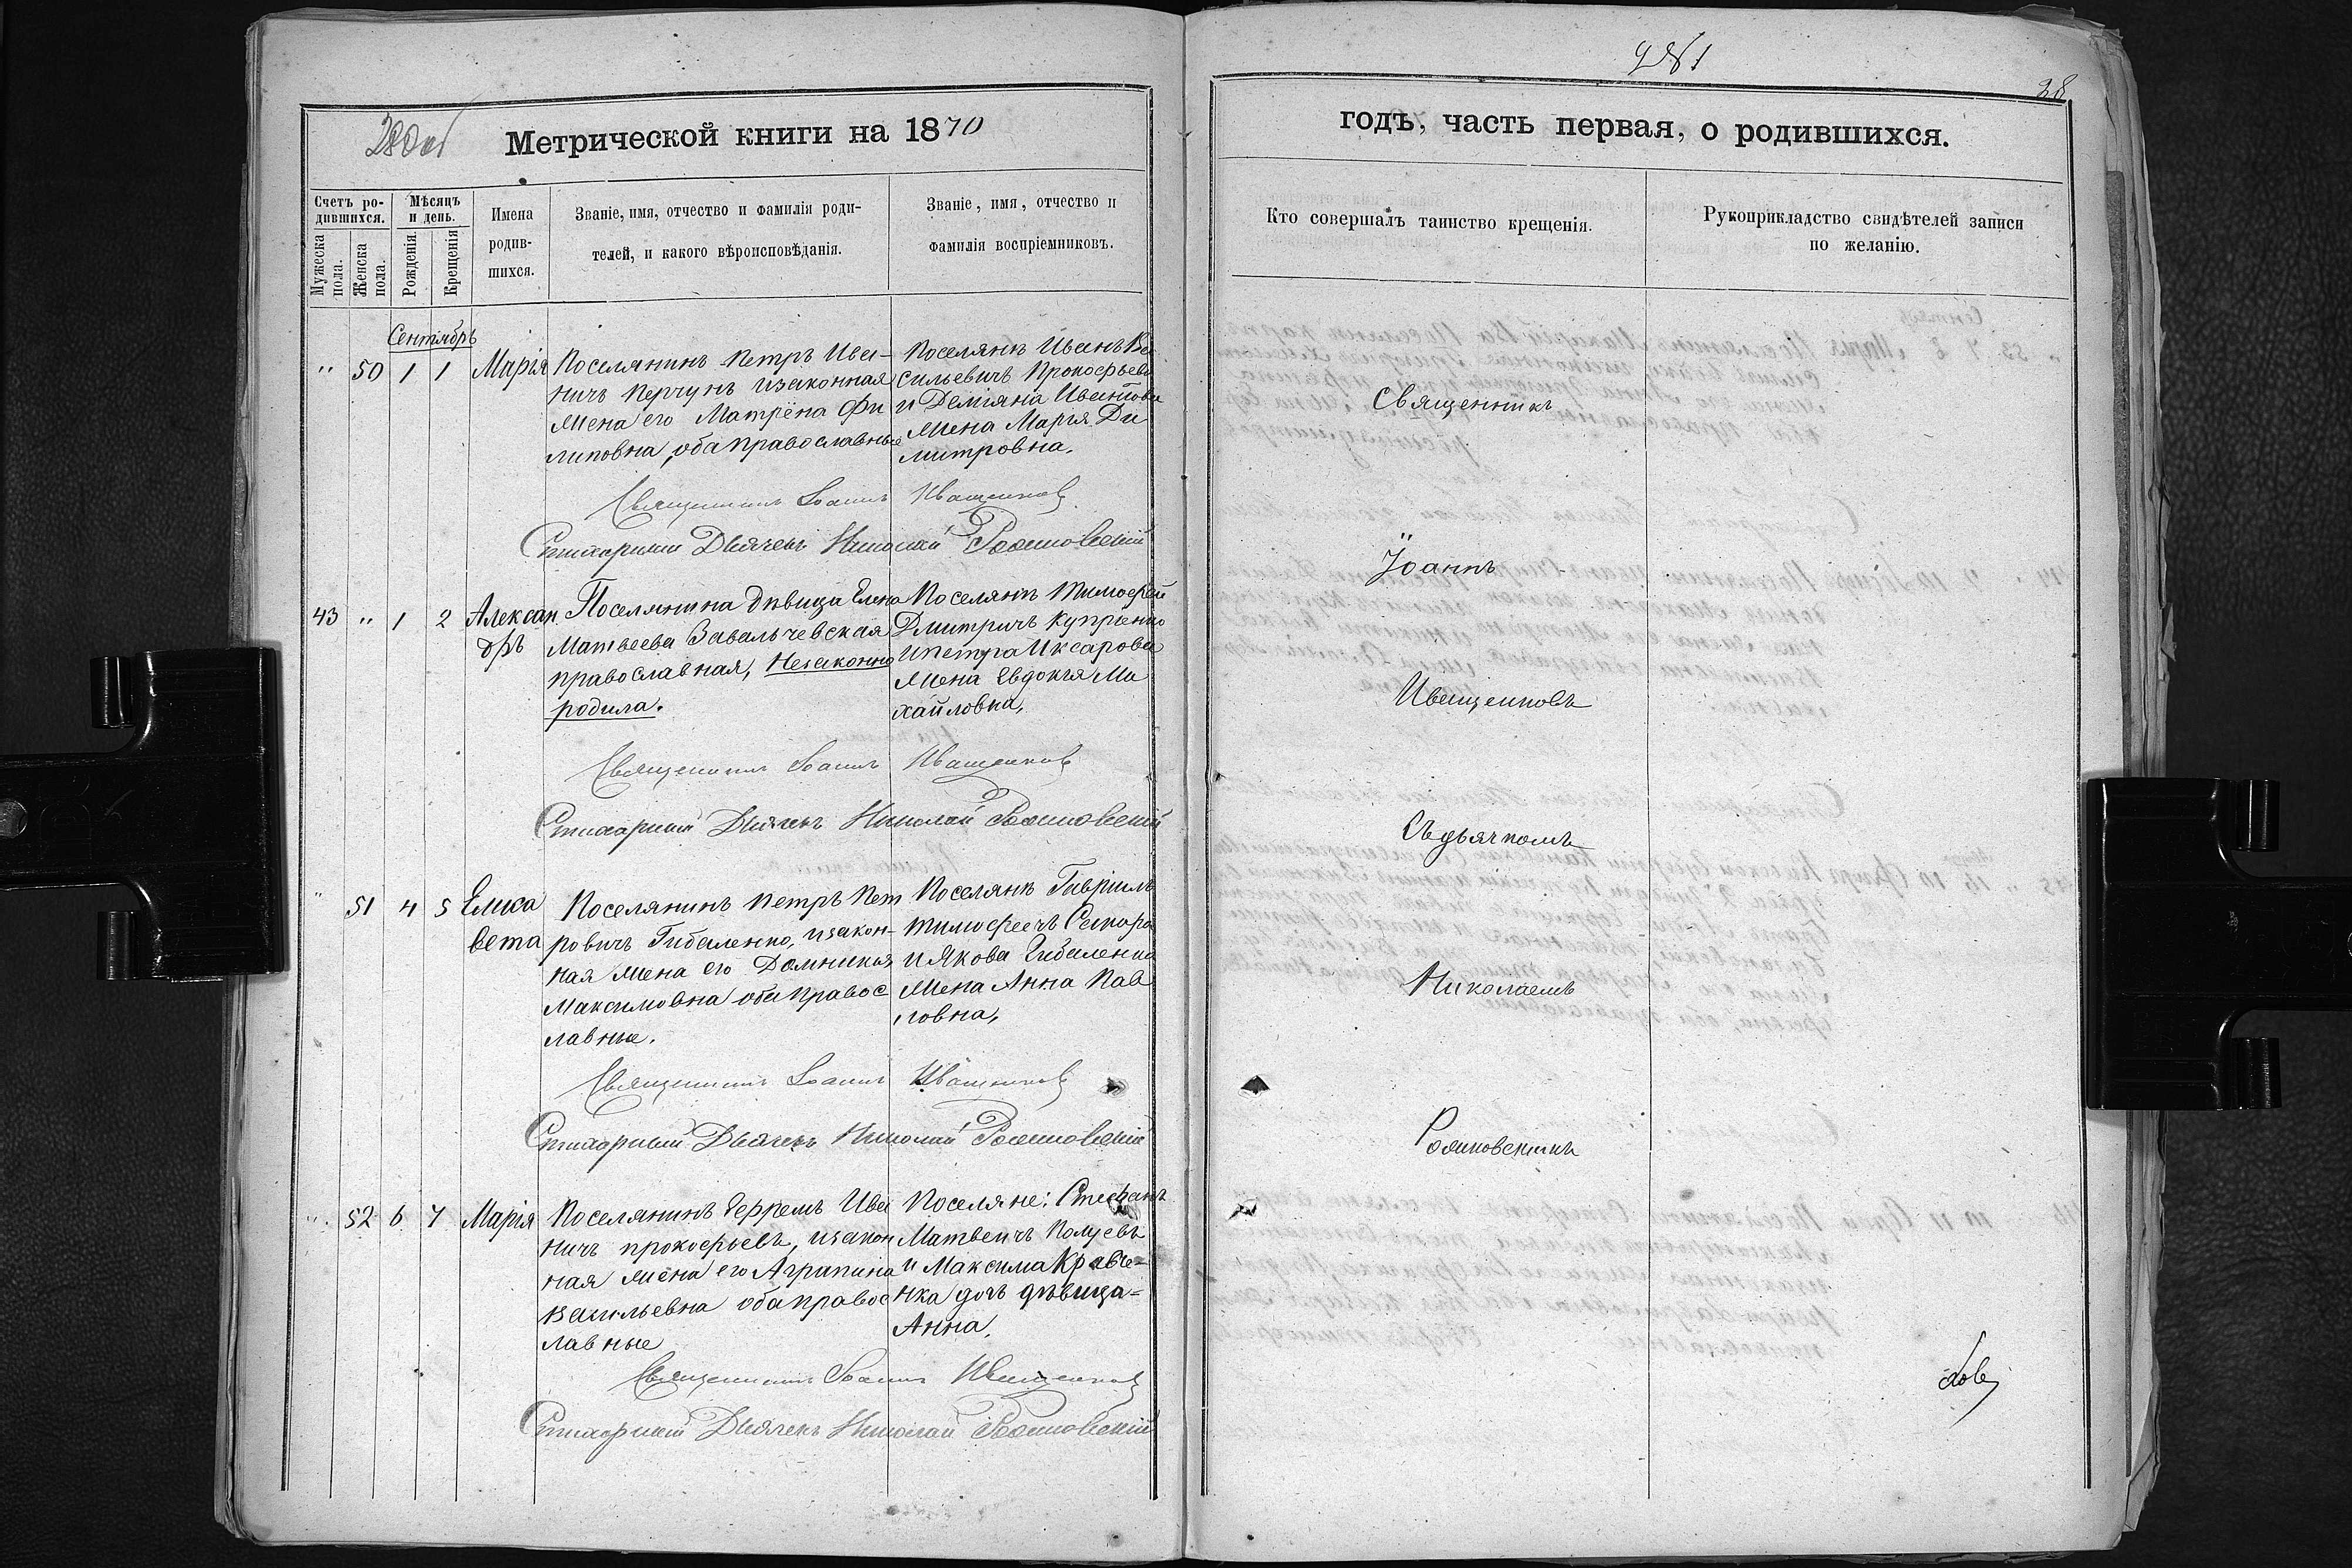 Метрической книги на 1870
Счетъ ро-
дившихся.
Мужеска
пола.
Женска
пола.
Мѣсяцъ
и день.
Рожденія.
Крещенія
Имена
родив-
шихся.
Званіе, имя, отчество и фамилія роди-
телей, и какого вѣроисповѣданія.
Званіе, имя, отчество и
фамилія воспріемниковъ.
Сентябрь
" 50 1 1 Марія
Поселянинъ Петръ Ива-
ничъ Перчунъ изаконная
жена его Матрёна Фи
липовна, оба православные
Поселянъ Иванъ Ва
сильевичъ Прокофьевъ
и Деміяна Иванова
жена Марія Ди
митровна,
Священникъ Іоаннъ Иващенковъ
Стихарный Дьячекъ Николай
43 " 1 2 Алексан
дръ
Поселянина дѣвица Елена
Матвеева Завальчевская
православная, незаконно
родила.
Поселянъ Тимофей
Дмитричъ Купрѣнко
ипетра Иксарова
жена Евдокія Ми
хайловна,
Священникъ Іоаннъ Иващенковъ
Стихарный Дьячекъ Николай
" 51 4 5 Елиса
вета
Поселянинъ Петръ Пет
ровичъ Гибаленко, изакон-
ная жена его Домникия
Максимовна оба правос
лавные.
Поселянъ Гавріилъ
Тимофеечъ
и Якова Гибаленка
жена Анна Пав
ловна,
Священникъ Іоаннъ Иващенковъ
Стихарный Дьячекъ Николай
" 52 6 7 Марія
Поселянинъ Ефремъ Ива
ничъ прокофьевъ, изакон
ная жена его Аграпина
Васильевна оба правос
лавные
Поселяне: Стефанъ
Матвеичъ Полуевъ
и Максима Кравче-
нка дочь дѣвица-
Анна,
Священникъ Іоаннъ Иващенковъ
Стихарный Дьячекъ Николай
38
годъ, часть первая, о родившихся.
Кто совершалъ таинство крещенія.
Рукоприкладство свидѣтелей записи
по желанію.
Священникъ
Іоаннъ
Иващенковъ
Съ дьячкомъ
Николаемъ